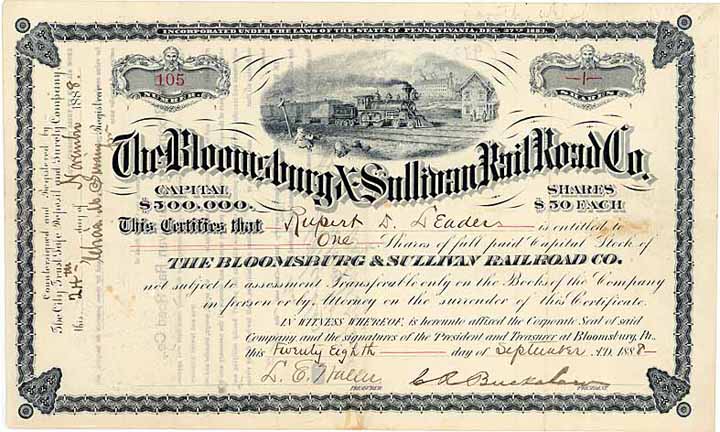 INCORPORATED UNDER THE LAWS OF THE STATE OF PENNSYLVANIA, DEC. 17TH 1883.
105
NUMBER
1
SHARES
The Bloomsburg & Sullivan Rail Road Co.
CAPITAL
$500,000.
SHARES
$50 EACH
This Certifies that Rupert D. Leaders is entitled to
One Shares of full paid Capital Stock of
THE BLOOMSBURG & SULLIVAN RAILROAD CO.
not subject to assessment Transferable only on the Books of the Company
in person or by Attorney on the surrender of this Certificate.
IN WITNESS WHEREOF, is hereunto affixed the Corporate Seal of said
Company and the signatures of the President and Treasurer at Bloomsburg, Pa.
this Twenty Eighth day of September A.D. 1888
L. E. Waller
C R Buckalew
TREASURER
PRESIDENT
Countersigned and Registered by
The City Trust Safe Deposit and Surety Company
this 24th day of November 1888.
Registrar